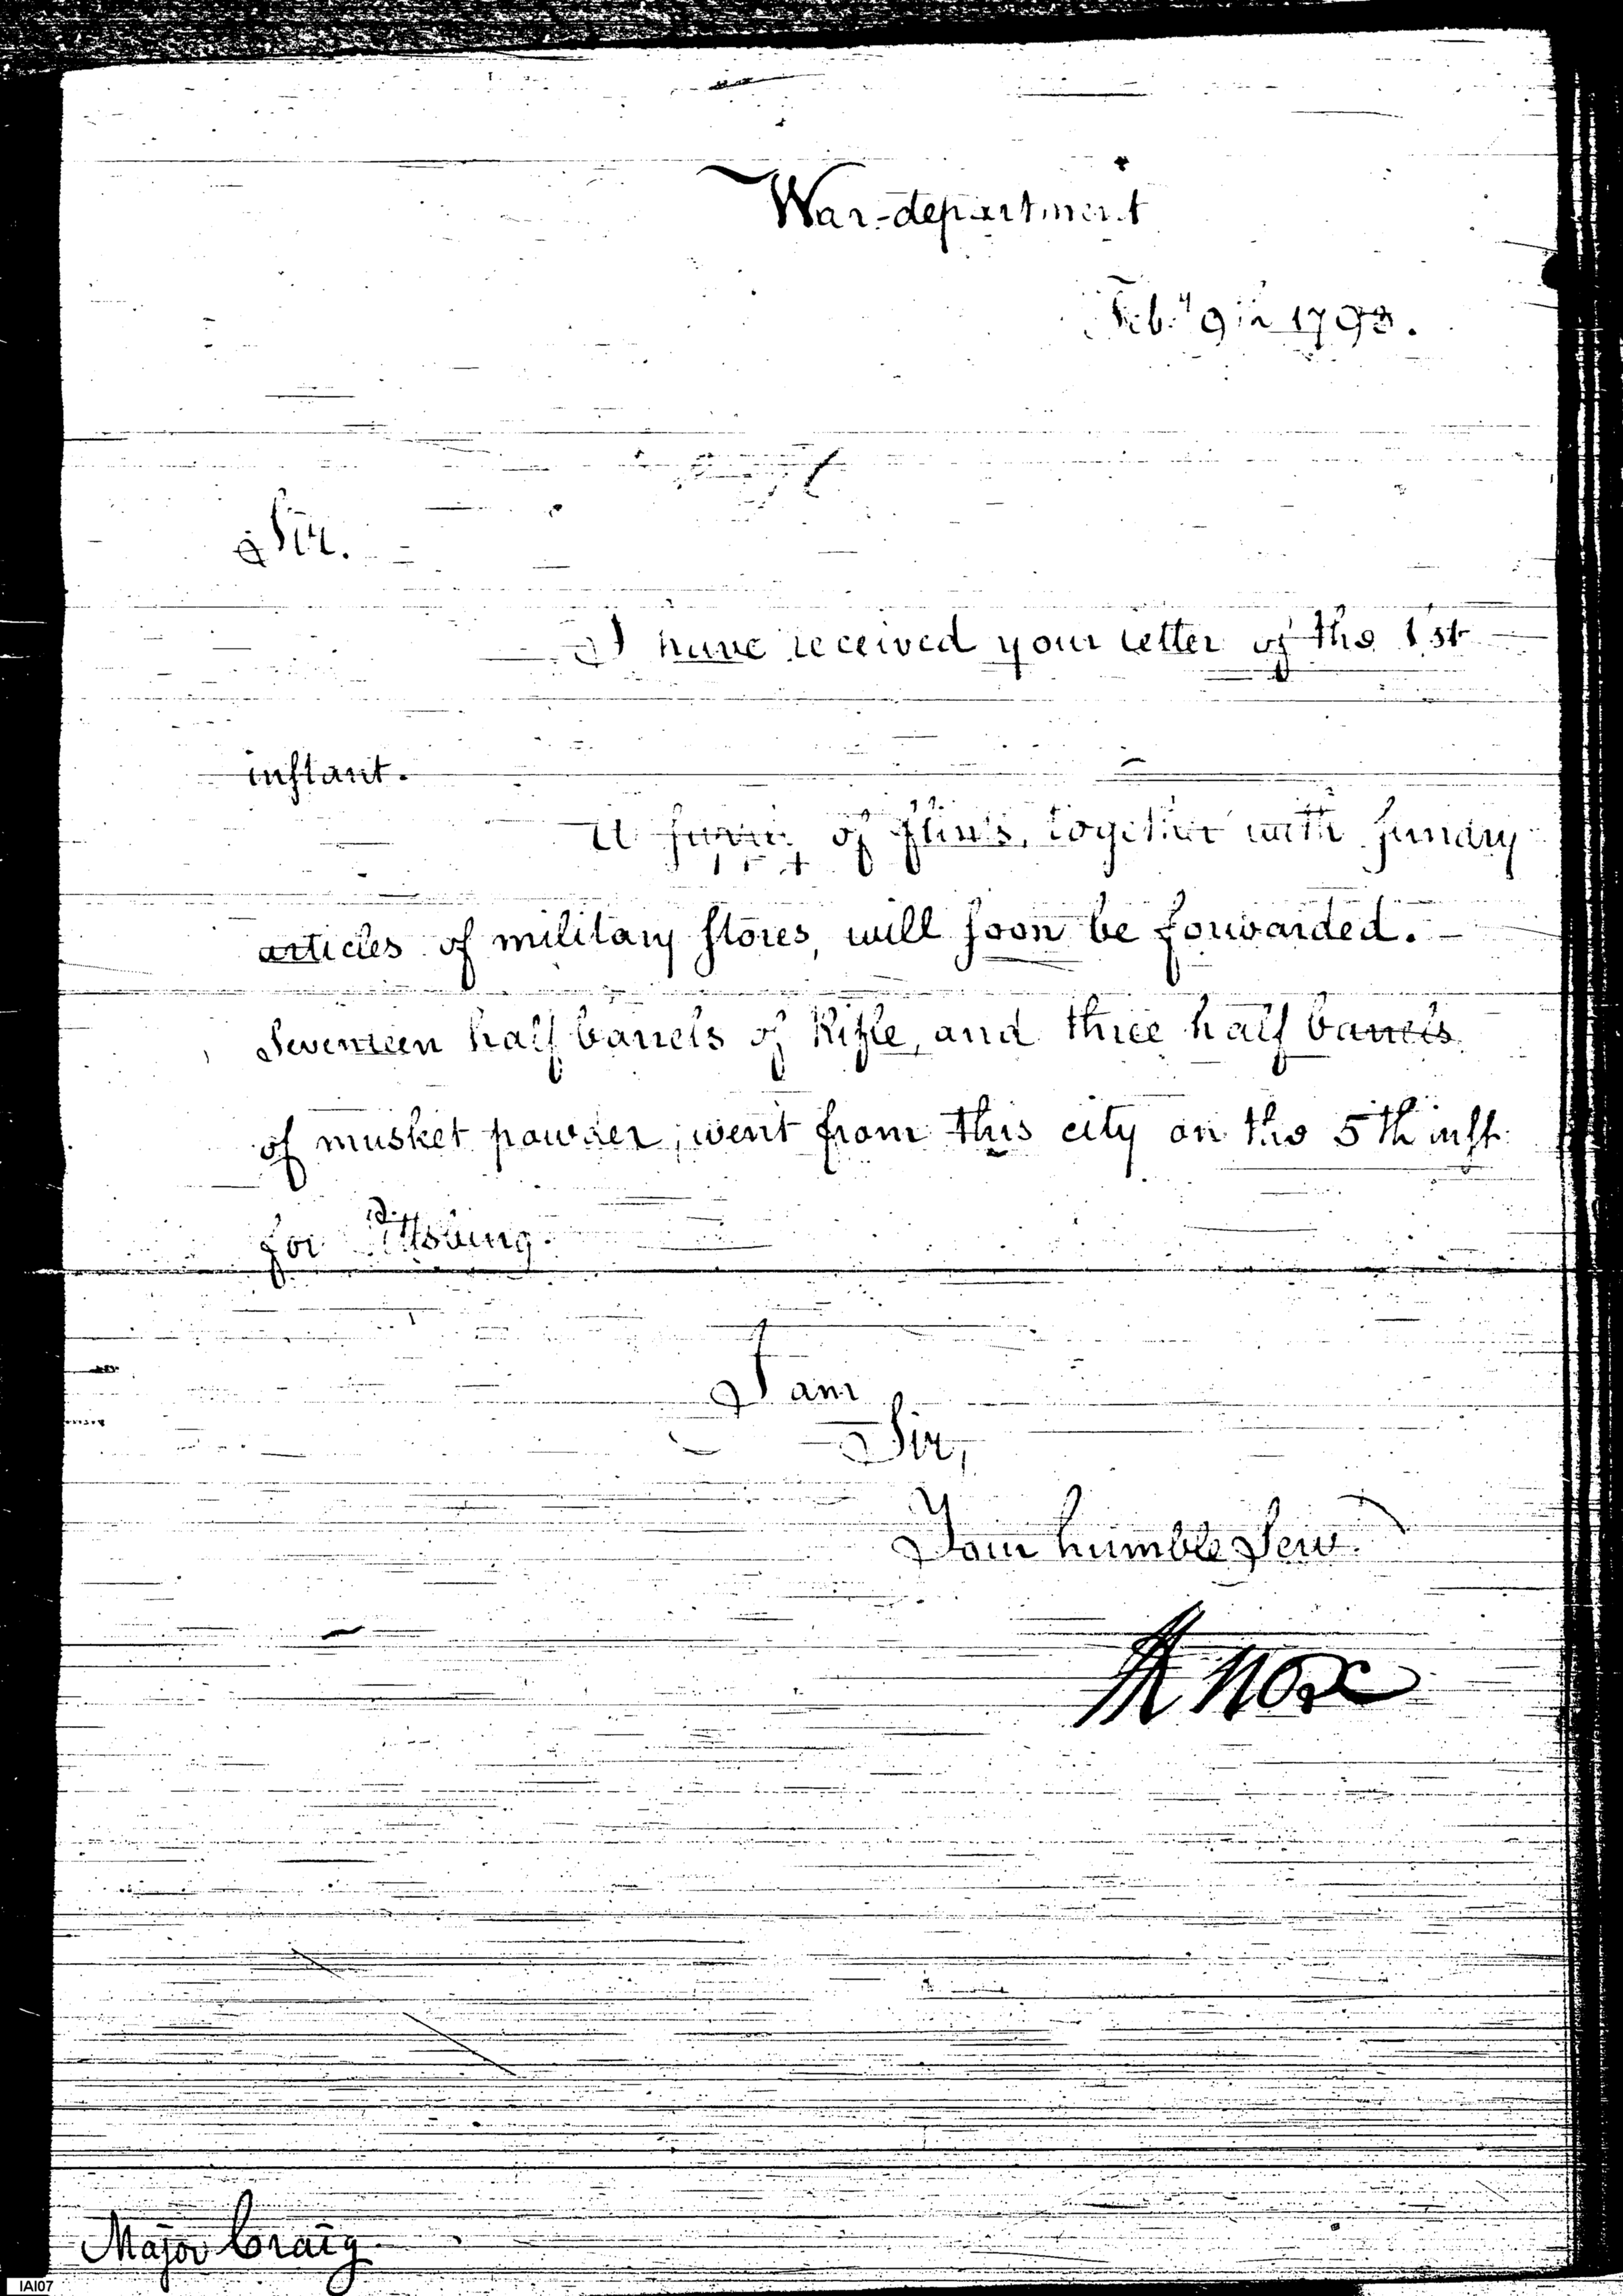 War-department
Feby 9th 1793.
Sir.
I have received your letter of the 1st
instant.
A supply of flints, together with sundry
articles of military stores, will soon be forwarded.
Seventeen half barrels of Rifle, and three half barrels
of musket powder, went from this city on the 5th inst.
for Pittsburg.
I am
Sir,
Your humble Serv.
HKnox
Major Craig
IAI07